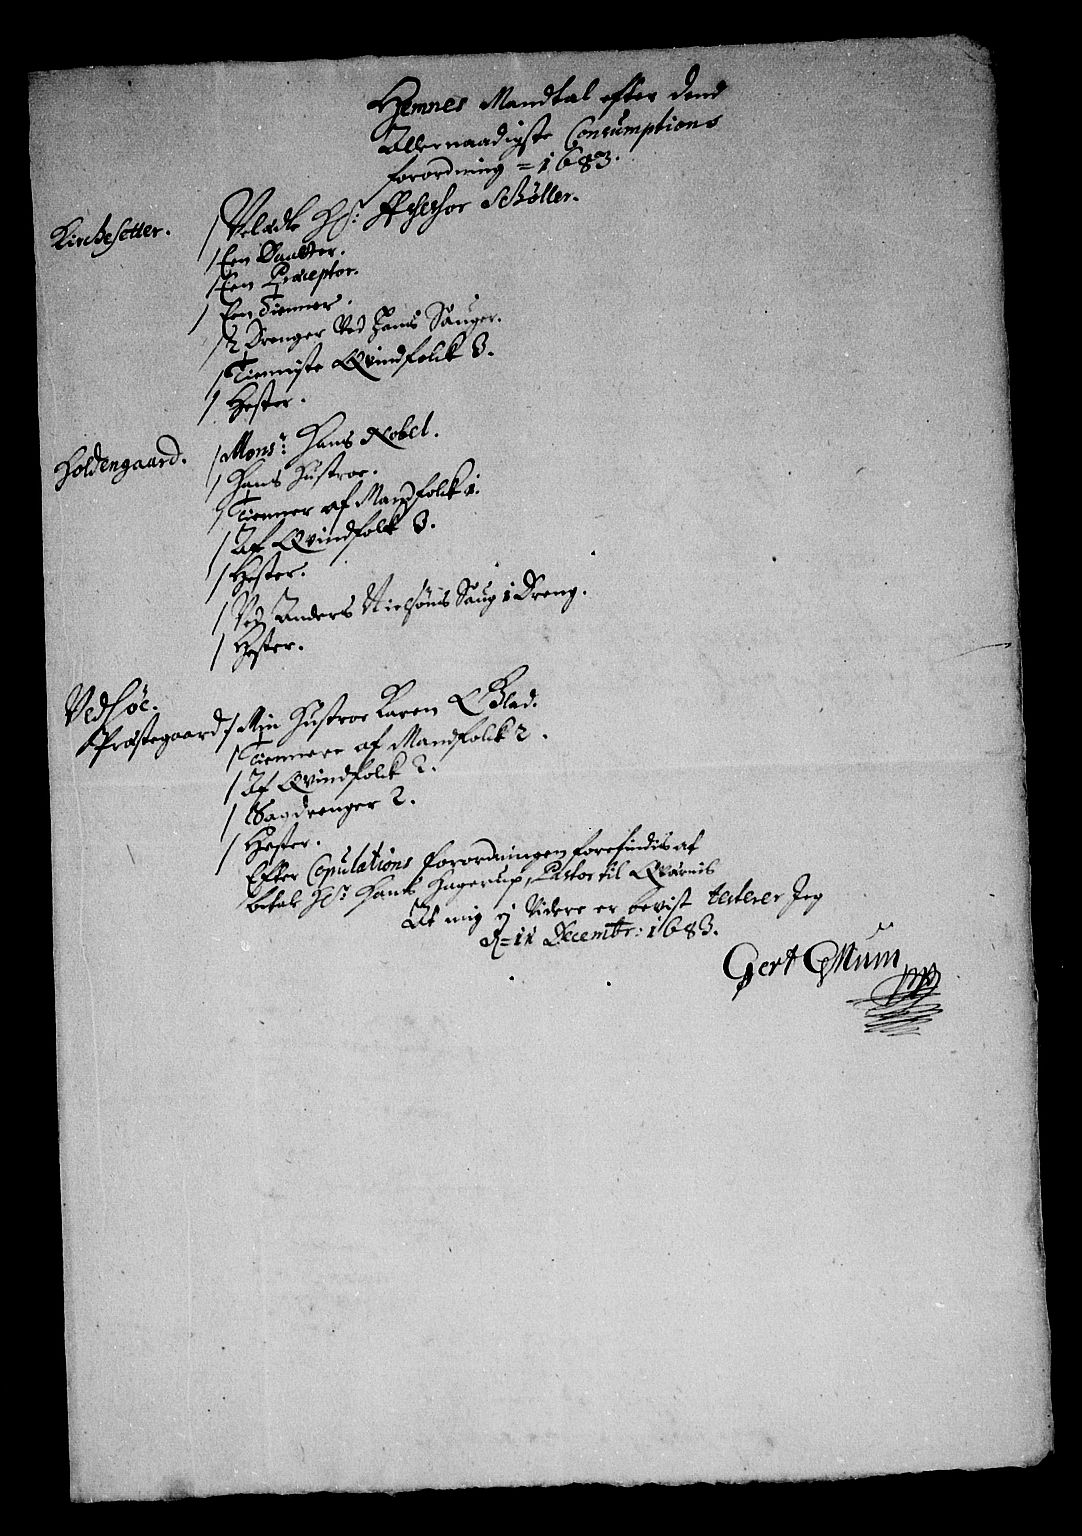 Hemnes Mandtal efter dend
Allernaadigste Consumptions
forordning = 1683.
Kirchesetter. / Velædle Hr: Assessor Schøller.
/ Een Daatter.
/ Een Præceptor.
/ Een Tienner.
/ 2 Drenger ved hans Sauger.
/ Tienniste Qvindfolck 3.
/ Hester.
Holdengaard. / Monsr: Hans Nobel.
/ Hans Hustroe.
/ Tienner af Mandfolck 1.
/ Af Qvindfolck 3.
/ Hester.
/ Ved Anders Nielsøns Saug 1 Dreng.
/ Hester.
Ved søe.
Præstegaard / Min Hustroe Karen Blad.
/ Tiennere af Mandfolck 2.
/ Af Qvindfolck 2.
/ Saagdrenger 2.
/ Hester.
Efter Copulations forordningen forefindis at
betale Hr: Hans Hagerup, Pastor til Qværnis
At mig ej videre er bevist testerer Jeg
d = 11 Decembr: 1683.
Gert Mum